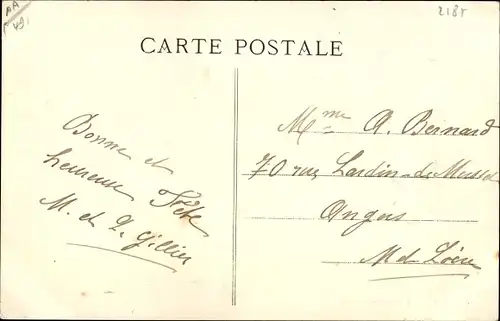 2185
CARTE POSTALE
Bonne et
heureuse Fête
M. et L. Gillier
Mme A. Bernard
70 rue Lardin de Musset
Angers
M et Loire